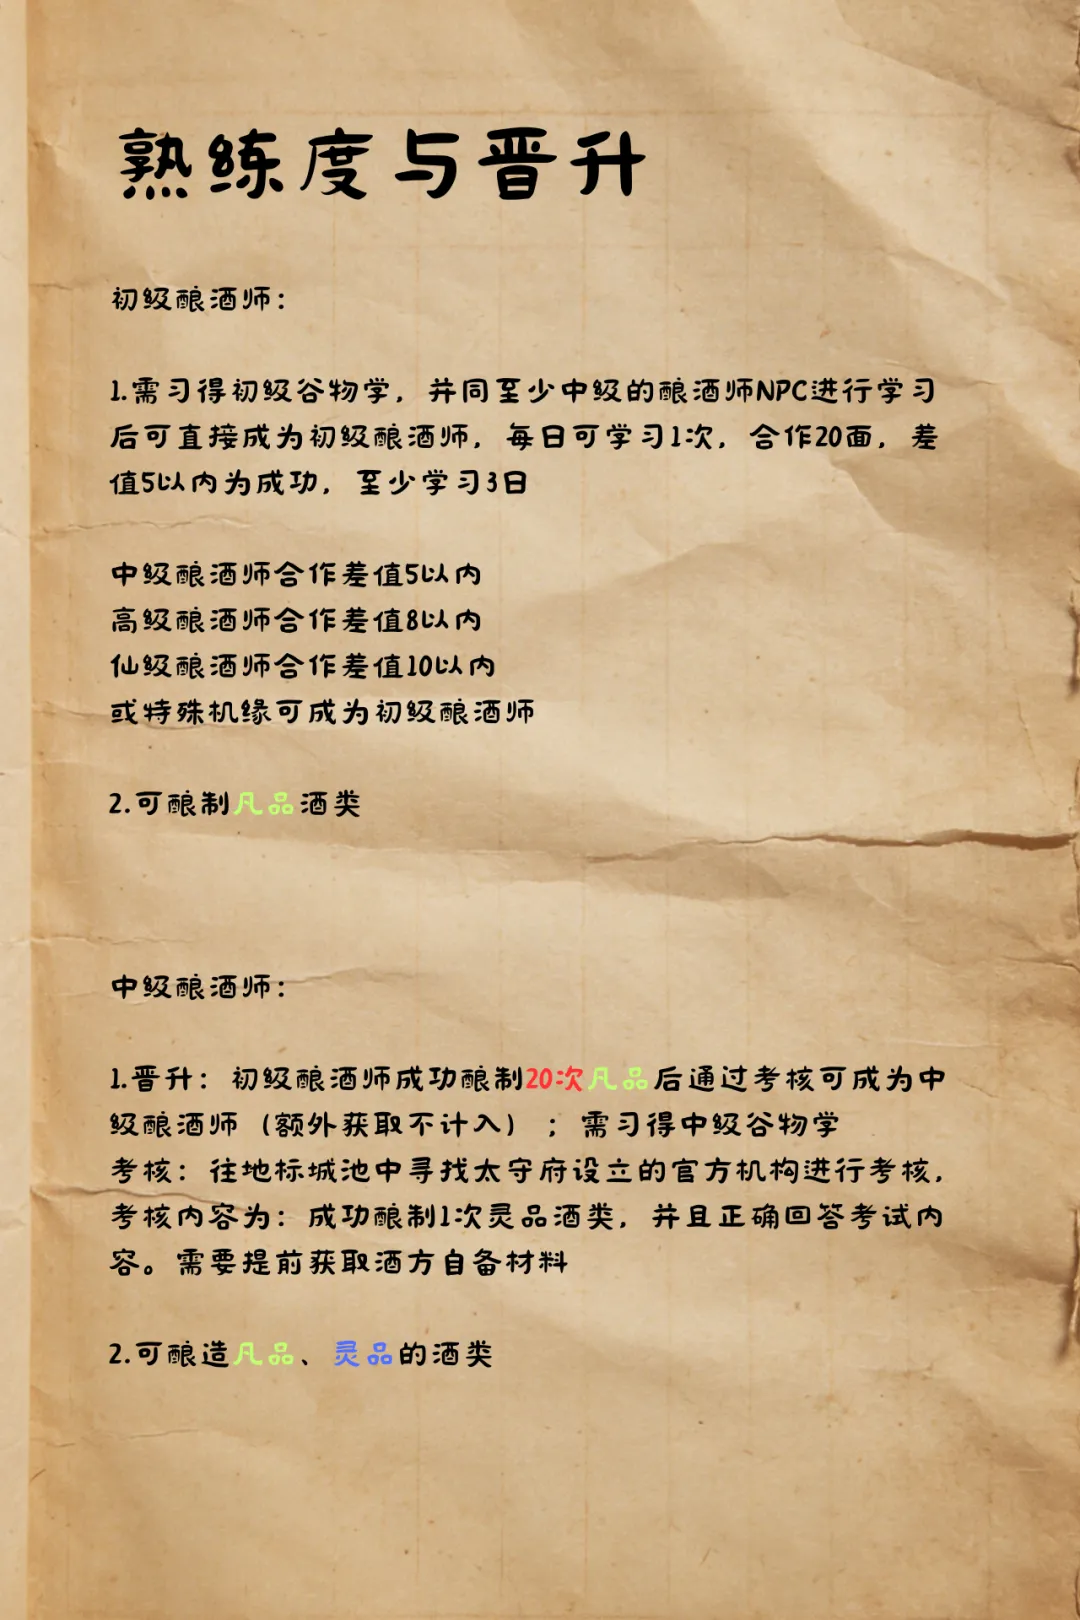 熟练度与晋升
初级酿酒师：
1.需习得初级谷物学，并同至少中级的酿酒师NPC进行学习
后可直接成为初级酿酒师，每日可学习1次，合作20面，差
值5以内为成功，至少学习3日
中级酿酒师合作差值5以内
高级酿酒师合作差值8以内
仙级酿酒师合作差值10以内
或特殊机缘可成为初级酿酒师
2.可酿制凡品酒类
中级酿酒师：
1.晋升：初级酿酒师成功酿制20次凡品后通过考核可成为中
级酿酒师（额外获取不计入）；需习得中级谷物学
考核：往地标城池中寻找太守府设立的官方机构进行考核，
考核内容为：成功酿制1次灵品酒类，并且正确回答考试内
容。需要提前获取酒方自备材料
2.可酿造凡品、灵品的酒类